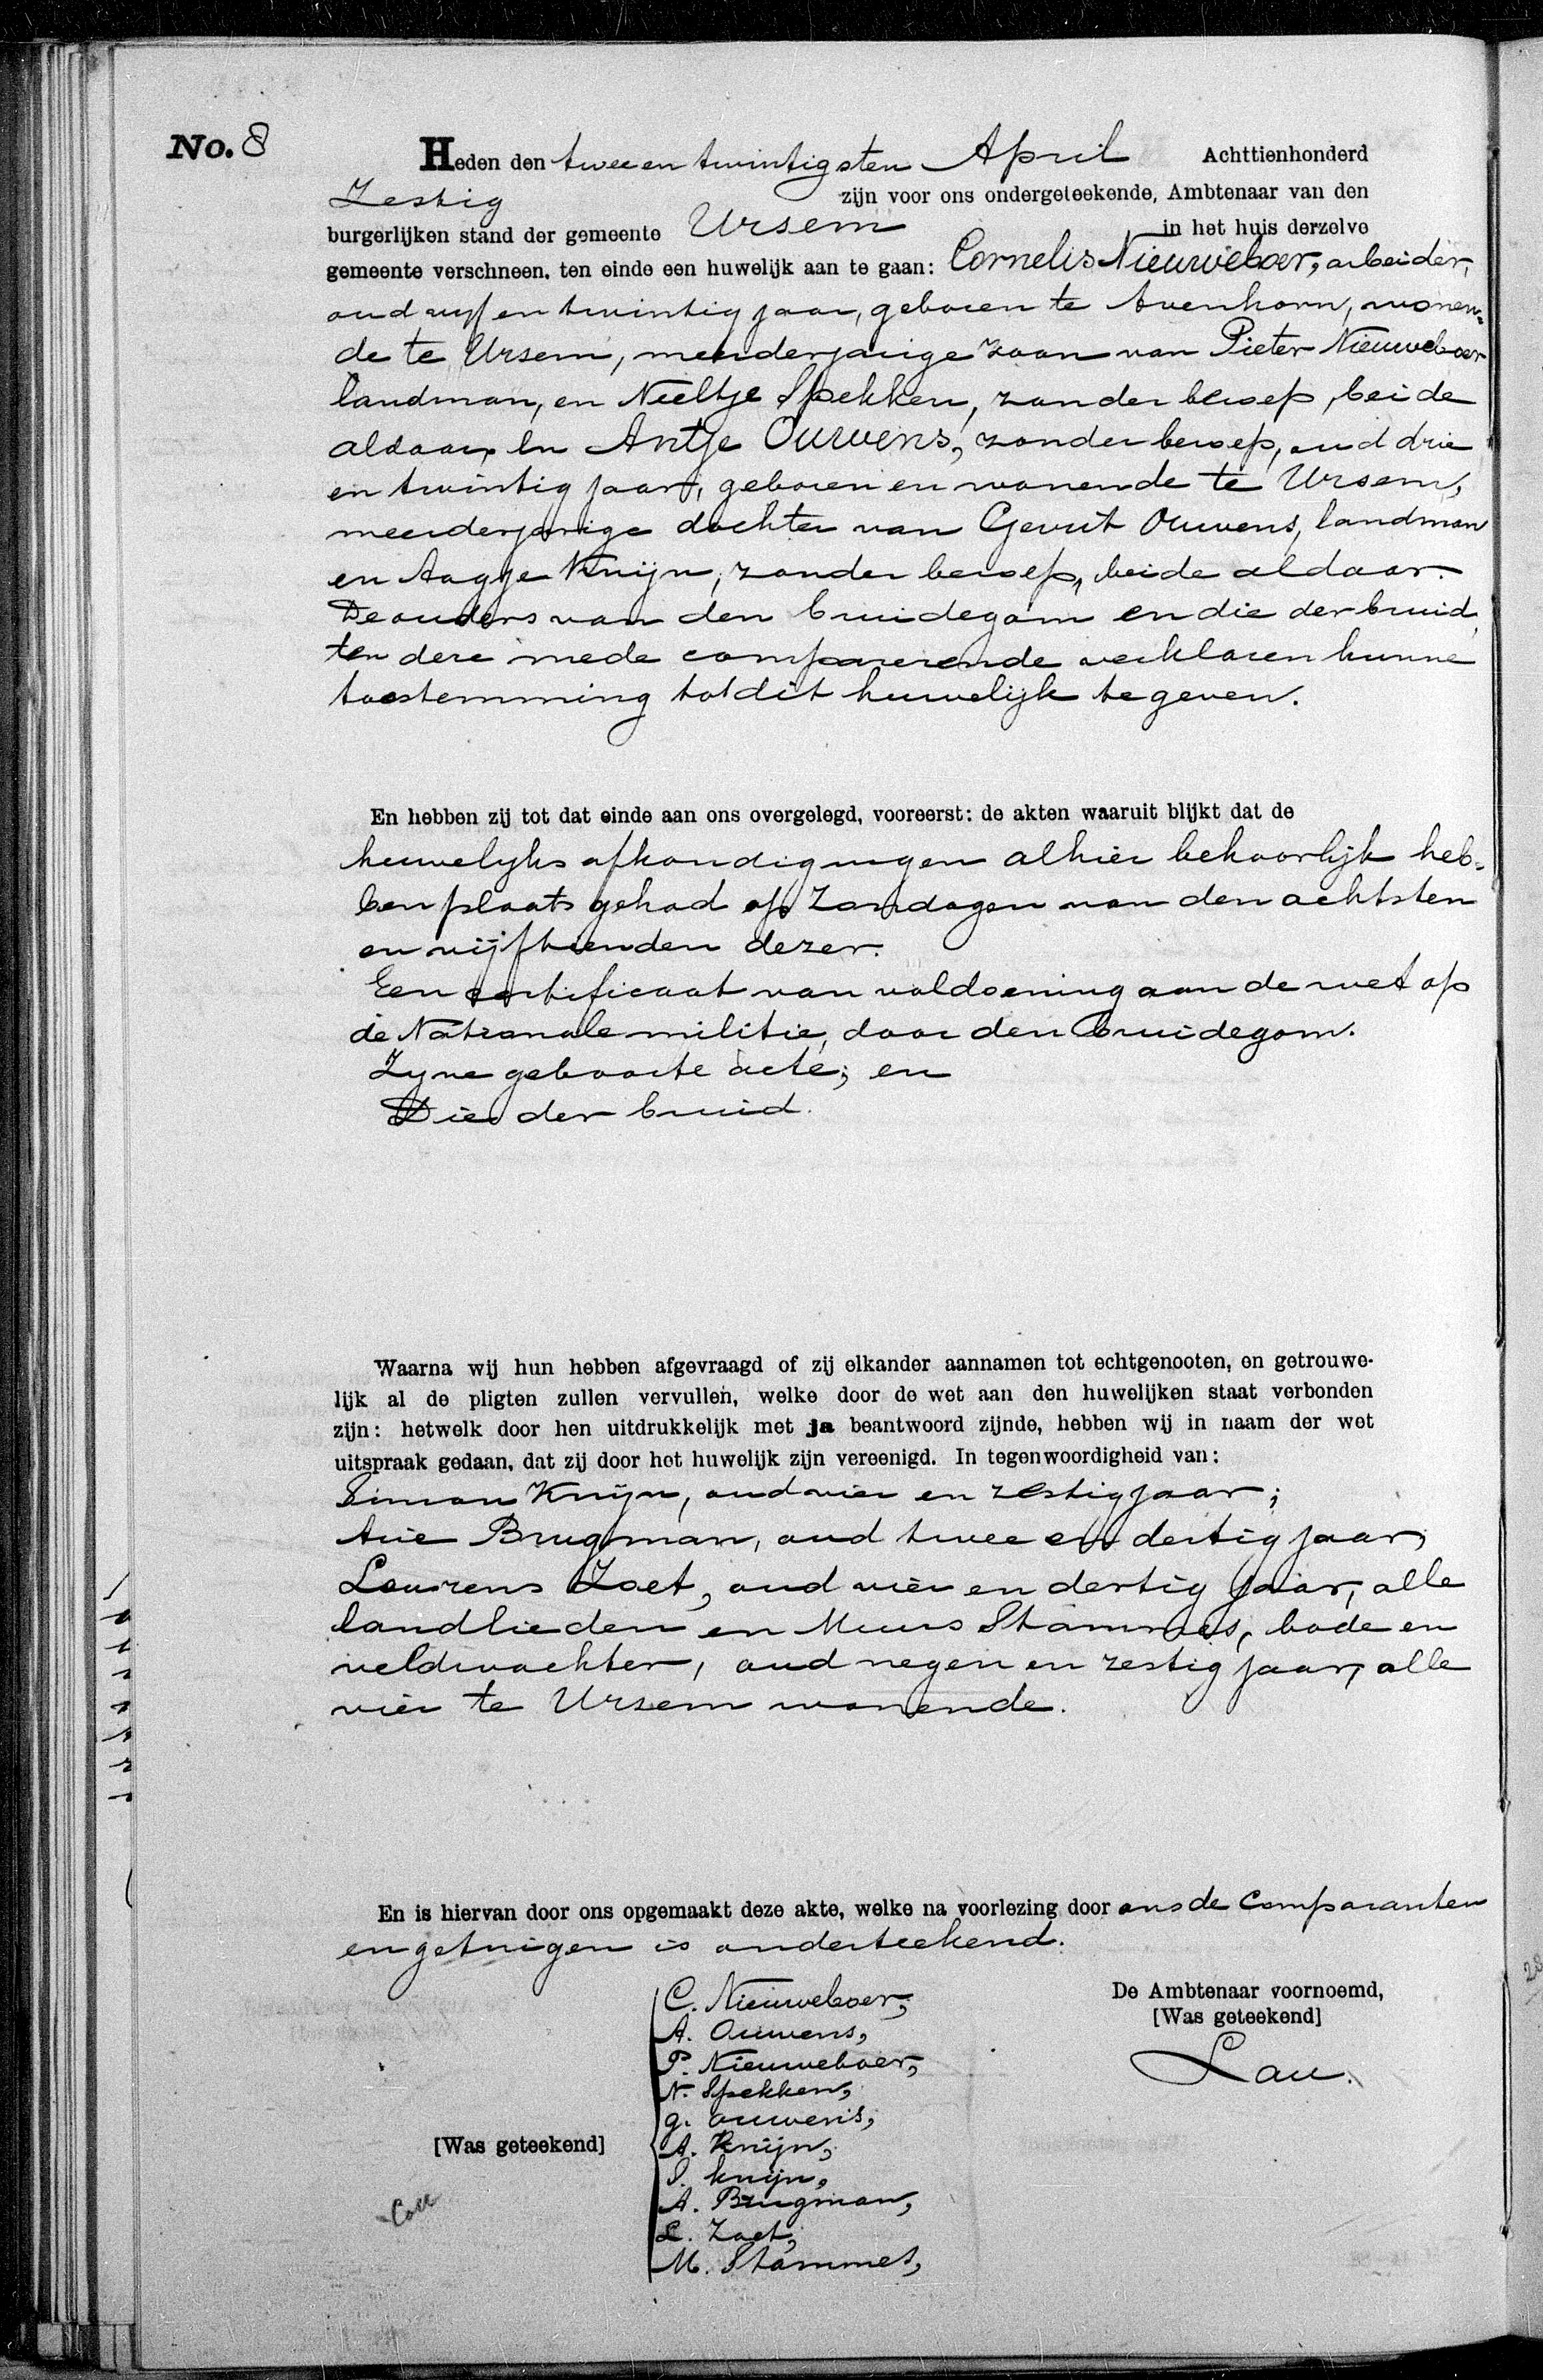 No. 8
Heden den twee en twintigsten April Achttienhonderd
Zestig zijn voor ons ondergeteekende, Ambtenaar van den
burgerlijken stand der gemeente Ursem in het huis derzelve
gemeente verschneen, ten einde een huwelijk aan te gaan: Cornelis Nieuweboer, arbeider,
oud vijf en twintig jaar, geboren te Avenhorn, wonen=
de te Ursem, meerderjarige zoon van Pieter Nieuweboer
landman, en Neeltje Spekken, zonder beroep, beide
aldaar, en Antje Ouwens, zonder beroep, oud drie
en twintig jaar, geboren en wonende te Ursem,
meerderjarige dochter van Gerrit Ouwens, landman
en Aagje Knijn, zonder beroep, beide aldaar.
De ouders van den bruidegom en die der bruid,
ten deze mede comparerende verklaren hunne
toestemming tot dit huwelijk te geven.
En hebben zij tot dat einde aan ons overgelegd, vooreerst: de akten waaruit blijkt dat de
huwelyks afkondigingen alhier behoorlijk heb=
ben plaats gehad op Zondagen van den achtsten
en vijftienden dezer.
Een certificaat van voldoening aan de wet op
de Nationale militie, door den bruidegom.
Zyne geboorte acte; en
Die der bruid.
Waarna wij hun hebben afgevraagd of zij elkander aannamen tot echtgenooten, en getrouwe-
lijk al de pligten zullen vervullen, welke door de wet aan den huwelijken staat verbonden
zijn: hetwelk door hen uitdrukkelijk met ja beantwoord zijnde, hebben wij in naam der wet
uitspraak gedaan, dat zij door het huwelijk zijn vereenigd. In tegenwoordigheid van:
Simon Knijn, oud vier en zestig jaar;
Arie Brugman, oud twee en dertig jaar,
Lourens Zoet, oud vier en dertig jaar, alle
landlieden en Muus Stammes, bode en
veldwachter, oud negen en zestig jaar, alle
vier te Ursem wonende.
En is hiervan door ons opgemaakt deze akte, welke na voorlezing door ons de Comparanten
en getuigen is onderteekend.
C. Nieuweboer,
A. Ouwens,
P. Nieuweboer,
N. Spekken,
g. ouwens,
[Was geteekend] A. Knijn,
S. knijn,
A. Brugman,
L. Zoet,
M. Stammes,
De Ambtenaar voornoemd,
[Was geteekend]
Lau.